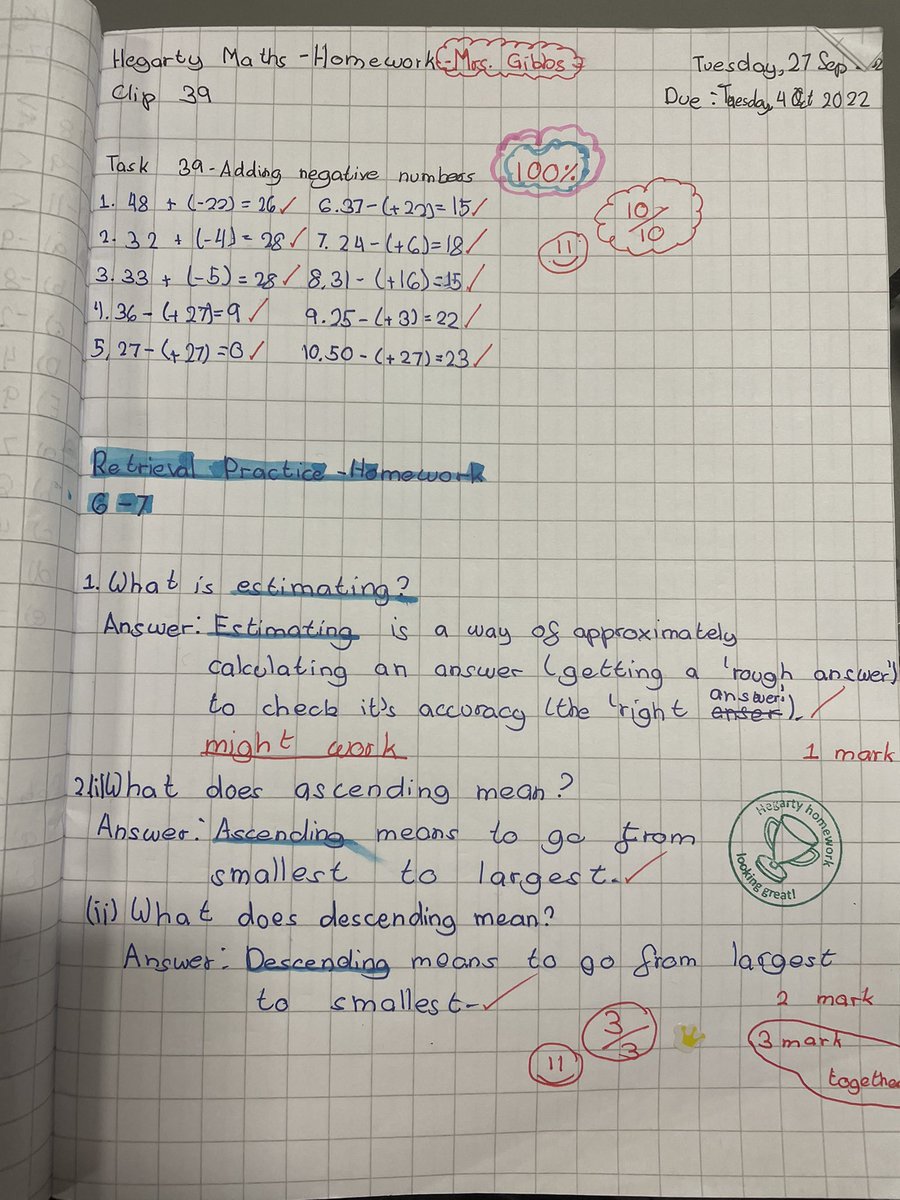 Hegarty Maths - Homework - Mrs. Gibbs
Tuesday, 27 Sep
Clip 39
Due : Tuesday, 4 Oct 2022
Task 39 - Adding negative numbers
100%
1. 48 + (-22) = 26 ✓ 6. 37 - (+22) = 15 ✓
10/10
2. 32 + (-4) = 28 ✓ 7. 24 - (+6) = 18 ✓
3. 33 + (-5) = 28 ✓ 8. 31 - (+16) = 15 ✓
4. 36 - (+27) = 9 ✓ 9. 25 - (+3) = 22 ✓
5, 27 - (+27) = 0 ✓ 10. 50 - (+27) = 23 ✓
Retrieval Practice - Homework
6 - 7
1. What is estimating?
Answer: Estimating is a way of approximately
calculating an answer (getting a 'rough answer')
to check it's accuracy (the 'right answer'). ✓
might work
1 mark
2(i) What does ascending mean?
Answer: Ascending means to go from
smallest to largest. ✓
Hegarty homework looking great!
(ii) What does descending mean?
Answer: Descending means to go from largest
to smallest. ✓
2 mark
3/3
3 mark
together